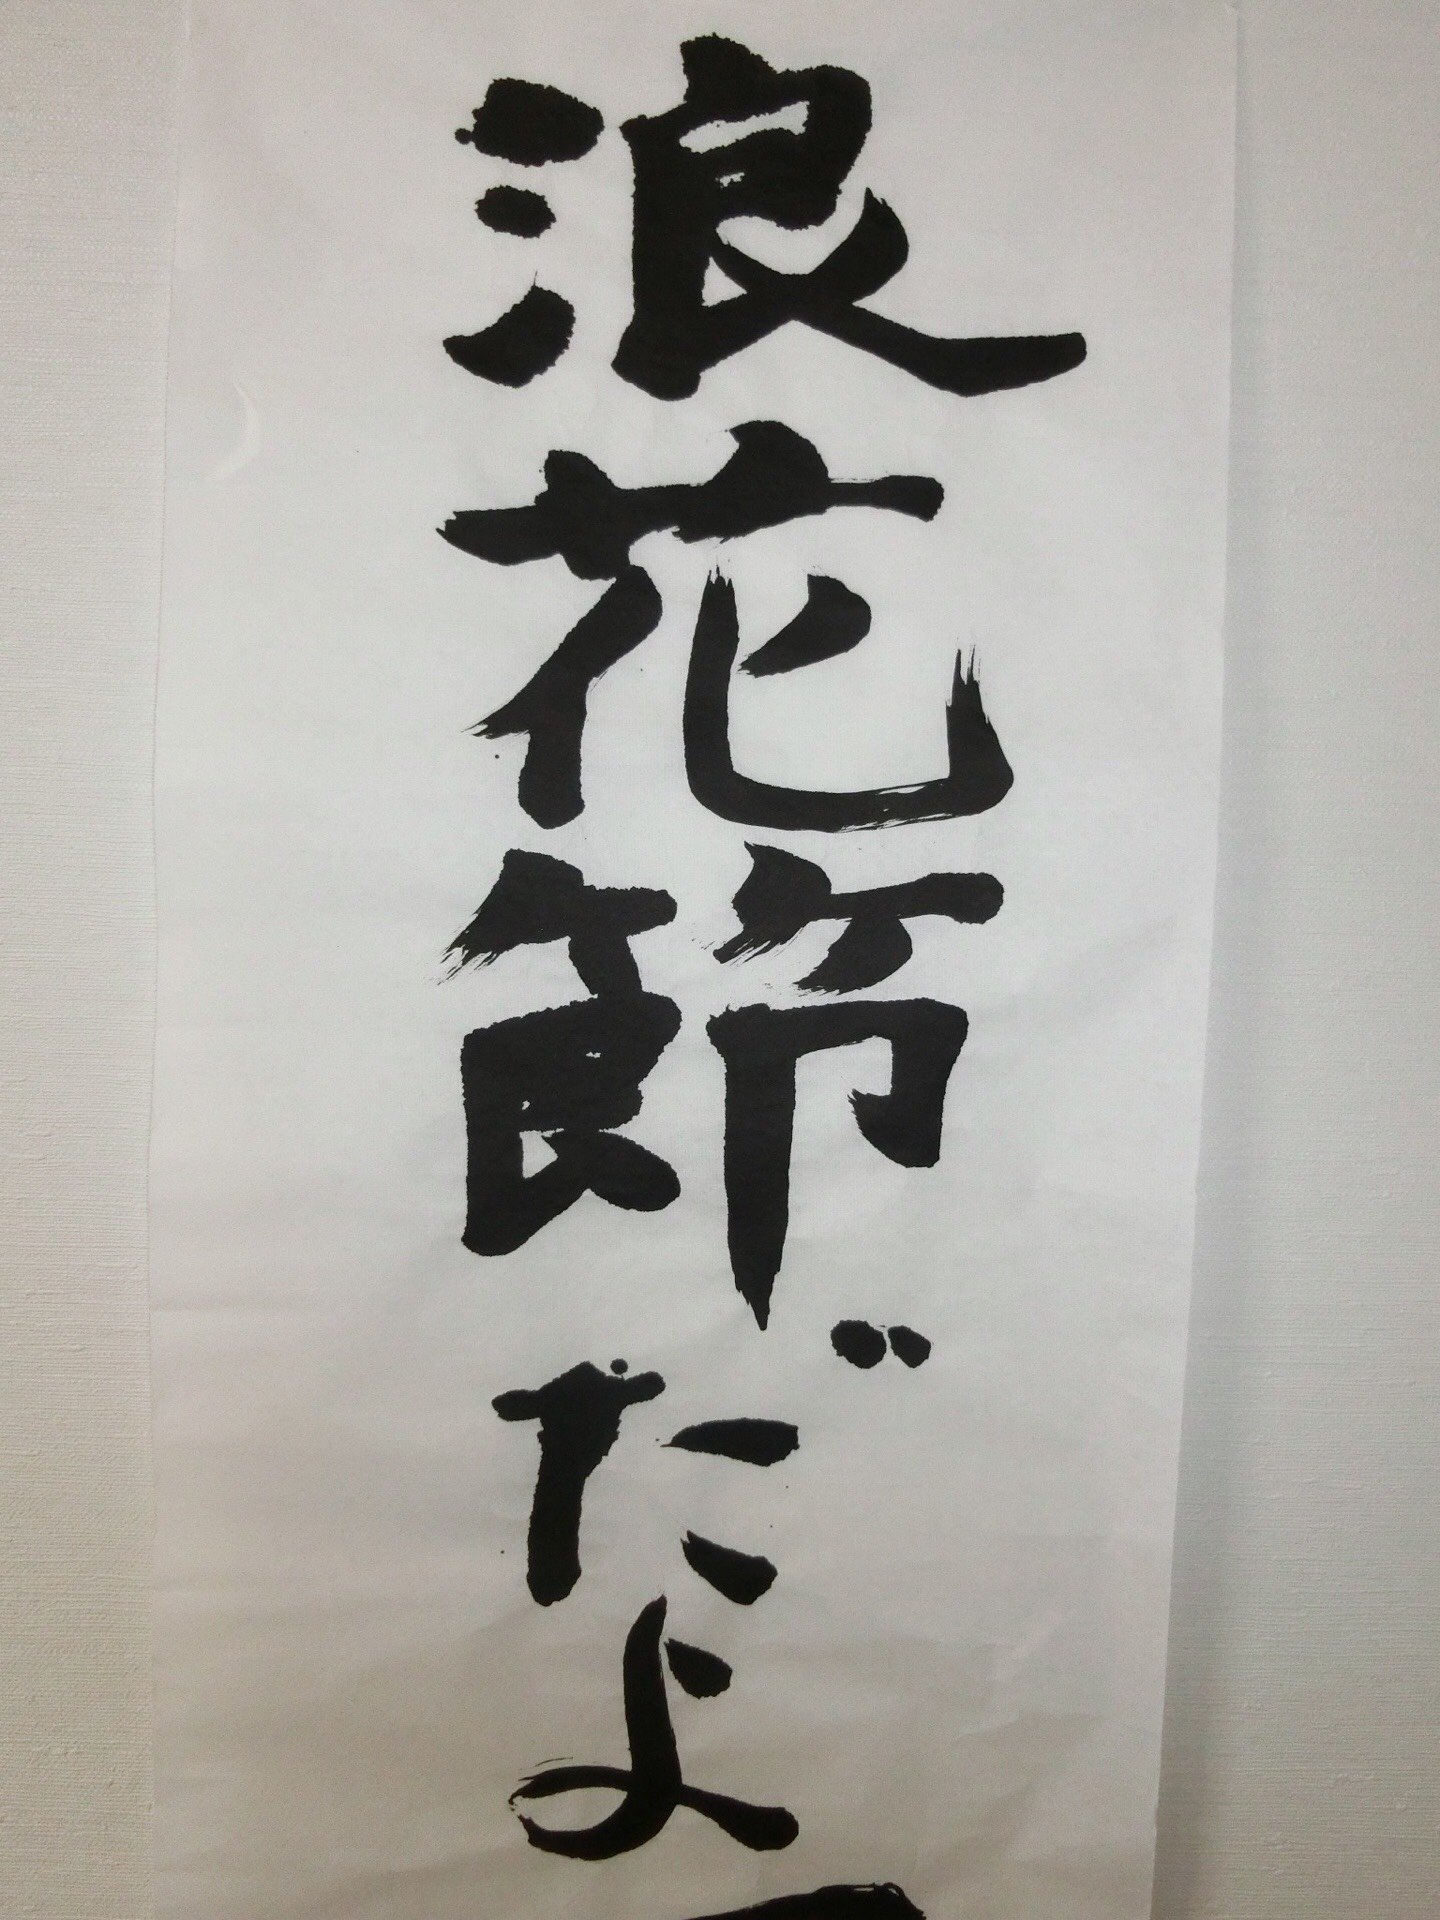 浪花節だよ